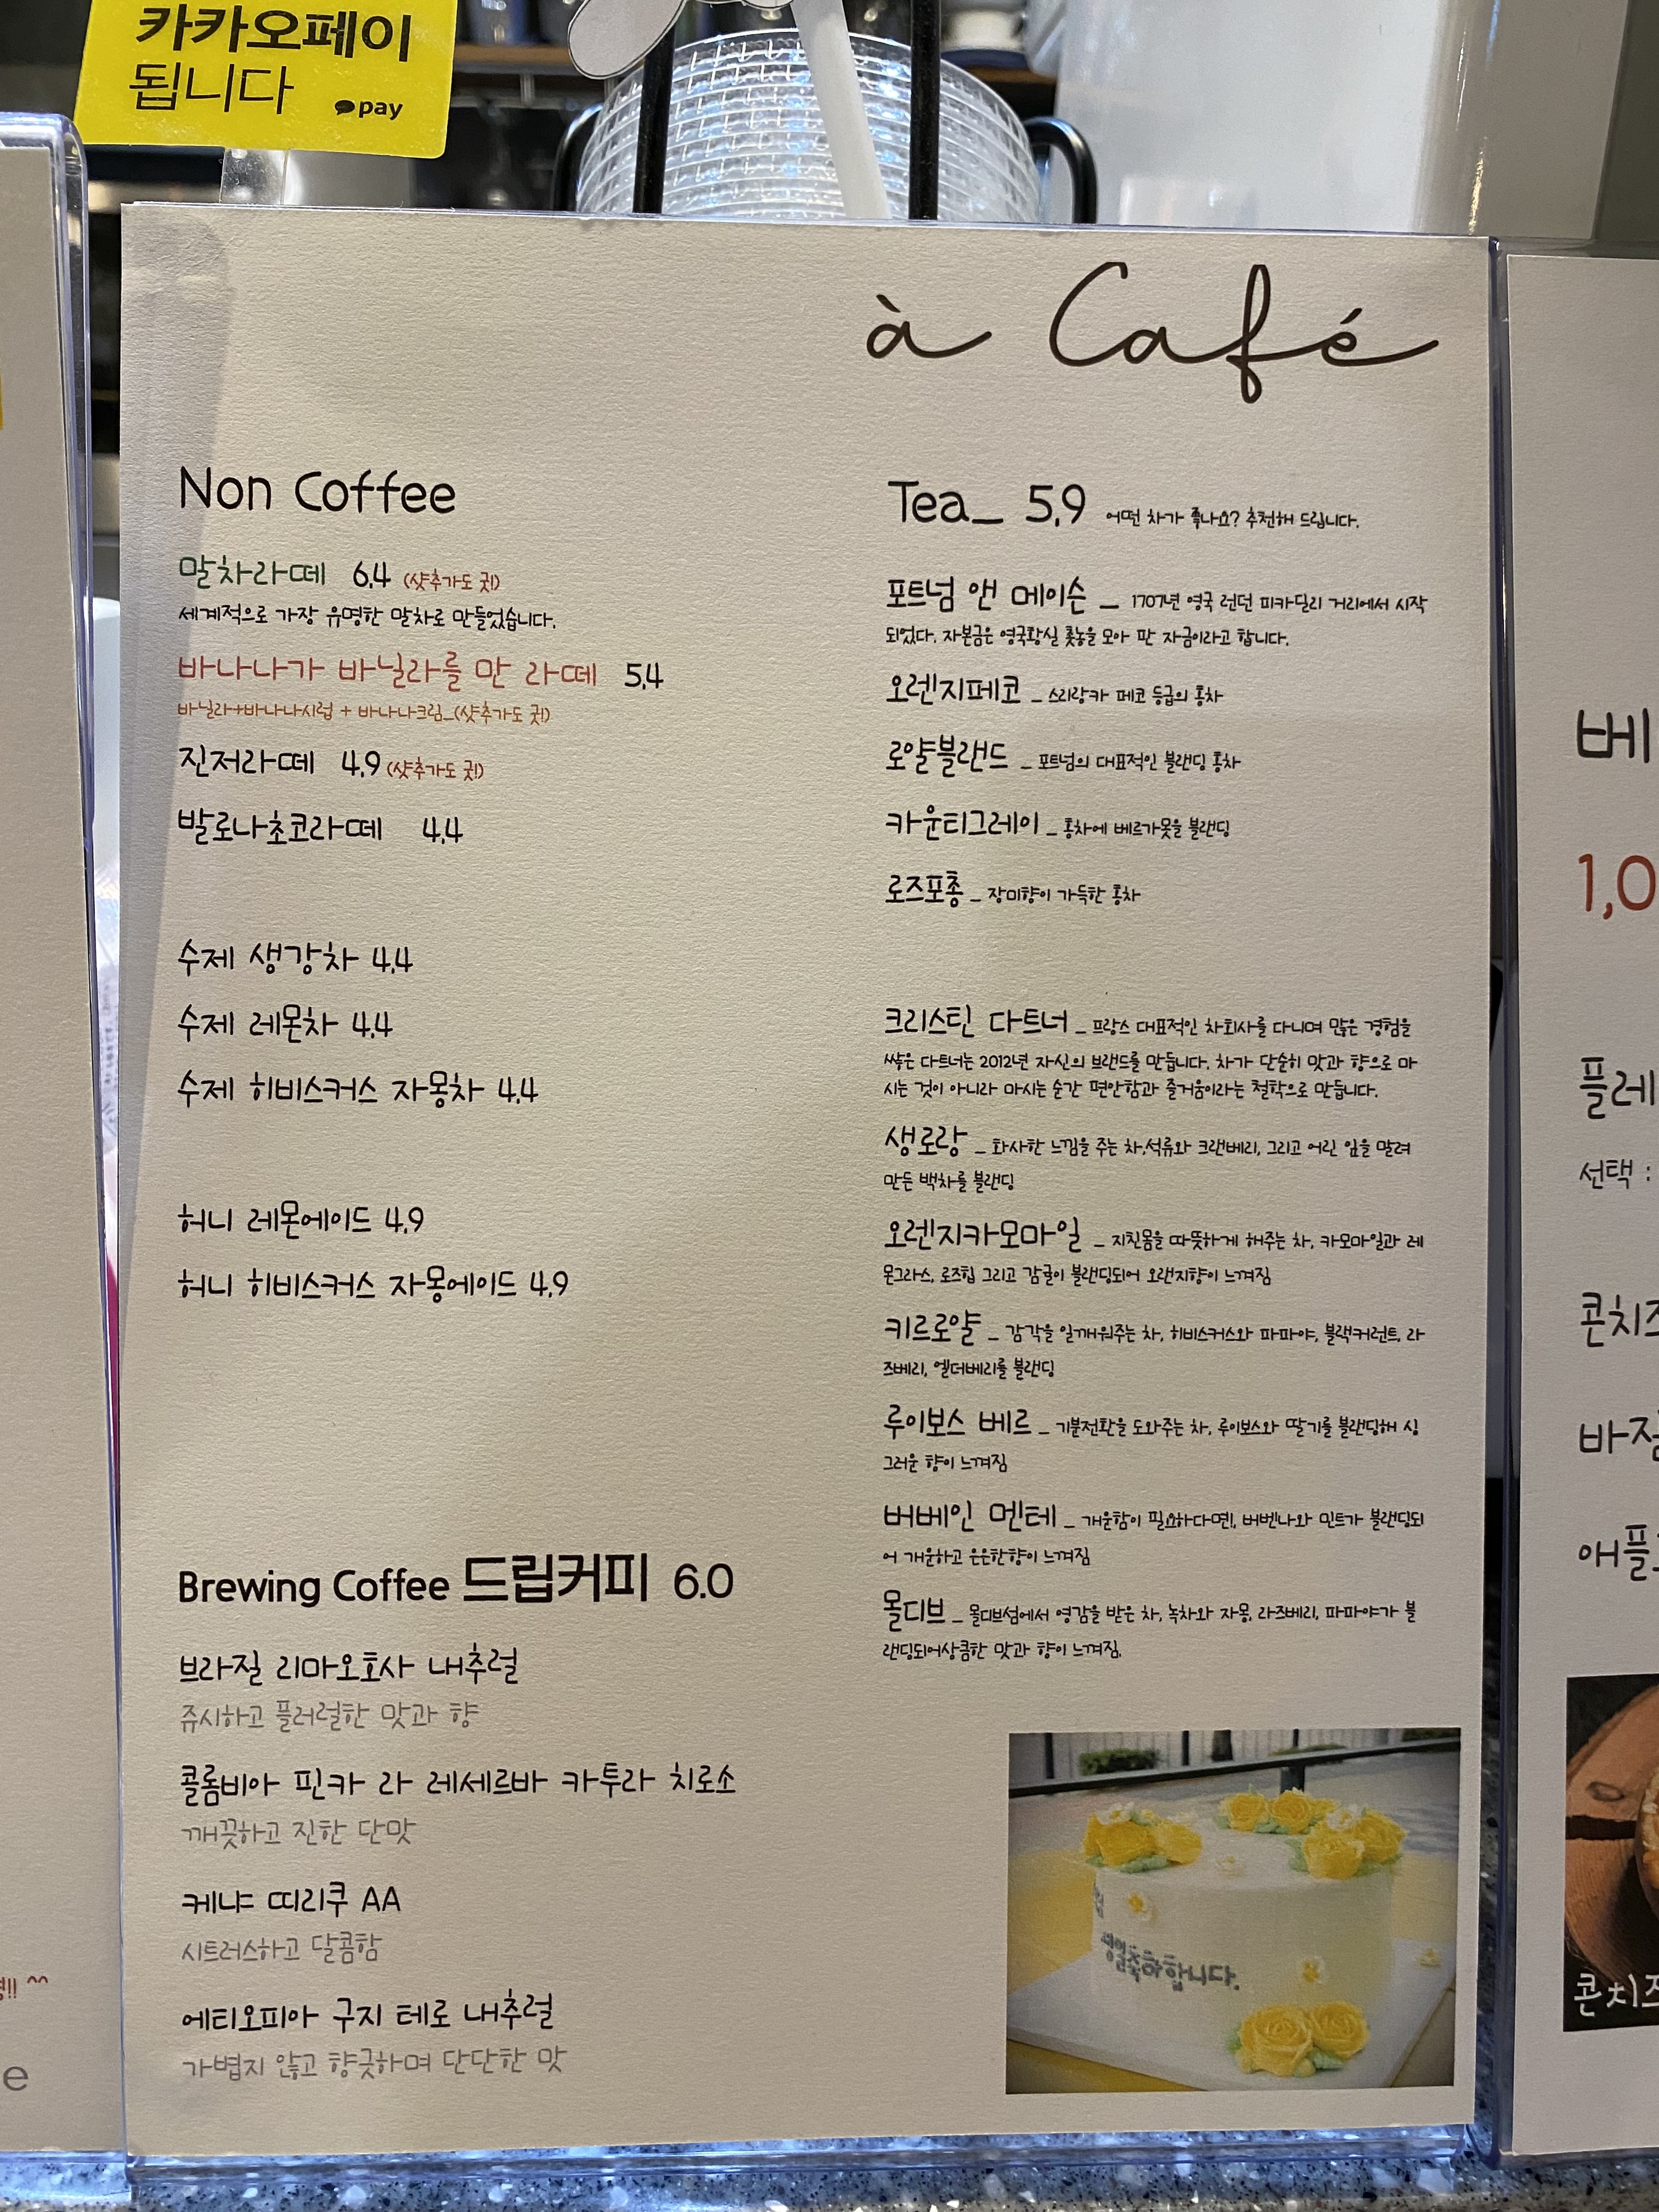 카카오페이
됩니다 pay
à Café
Non Coffee
말차라떼 6.4 (샷추가도 굿!)
세계적으로 가장 유명한 말차로 만들었습니다.
바나나가 바닐라를 만 라떼 5.4
바닐라+바나나시럽 + 바나나크림_(샷추가도 굿!)
진저라떼 4.9 (샷추가도 굿!)
발로나초코라떼 4.4
수제 생강차 4.4
수제 레몬차 4.4
수제 히비스커스 자몽차 4.4
허니 레몬에이드 4.9
허니 히비스커스 자몽에이드 4.9
Brewing Coffee 드립커피 6.0
브라질 리마오호사 내추럴
쥬시하고 플러럴한 맛과 향
콜롬비아 핀카 라 레세르바 카투라 치로소
깨끗하고 진한 단맛
케냐 띠리쿠 AA
시트러스하고 달콤함
에티오피아 구지 테로 내추럴
가볍지 않고 향긋하며 단단한 맛
Tea_ 5.9 어떤 차가 좋나요? 추천해 드립니다.
포트넘 앤 메이슨 _ 1707년 영국 런던 피카딜리 거리에서 시작
되었다. 자본금은 영국황실 촛농을 모아 판 자금이라고 합니다.
오렌지페코 _ 스리랑카 페코 등급의 홍차
로얄블랜드 _ 포트넘의 대표적인 블랜딩 홍차
카운티그레이 _ 홍차에 베르가못을 블랜딩
로즈포총 _ 장미향이 가득한 홍차
크리스틴 다트너 _ 프랑스 대표적인 차회사를 다니며 많은 경험을
쌓은 다트너는 2012년 자신의 브랜드를 만듭니다. 차가 단순히 맛과 향으로 마
시는 것이 아니라 마시는 순간 편안함과 즐거움이라는 철학으로 만듭니다.
생로랑 _ 화사한 느낌을 주는 차.석류와 크랜베리, 그리고 어린 잎을 말려
만든 백차를 블랜딩
오렌지카모마일 _ 지친몸을 따뜻하게 해주는 차, 카모마일과 레
몬그라스, 로즈힙 그리고 감귤이 블랜딩되어 오랜지향이 느껴짐
키르로얄 _ 감각을 일깨워주는 차, 히비스커스와 파파야, 블랙커런트, 라
즈베리, 엘더베리를 블랜딩
루이보스 베르 _ 기분전환을 도와주는 차, 루이보스와 딸기를 블랜딩해 싱
그러운 향이 느껴짐
버베인 멘테 _ 개운함이 필요하다면!, 버벤나와 민트가 블랜딩되
어 개운하고 은은한향이 느껴짐
몰디브 _ 몰디브섬에서 영감을 받은 차, 녹차와 자몽, 라즈베리, 파파야가 블
랜딩되어상큼한 맛과 향이 느껴짐.
생일축하합니다.
베
1,0
플레
선택 :
콘치즈
바질
애플
콘치즈
!! ^^
e